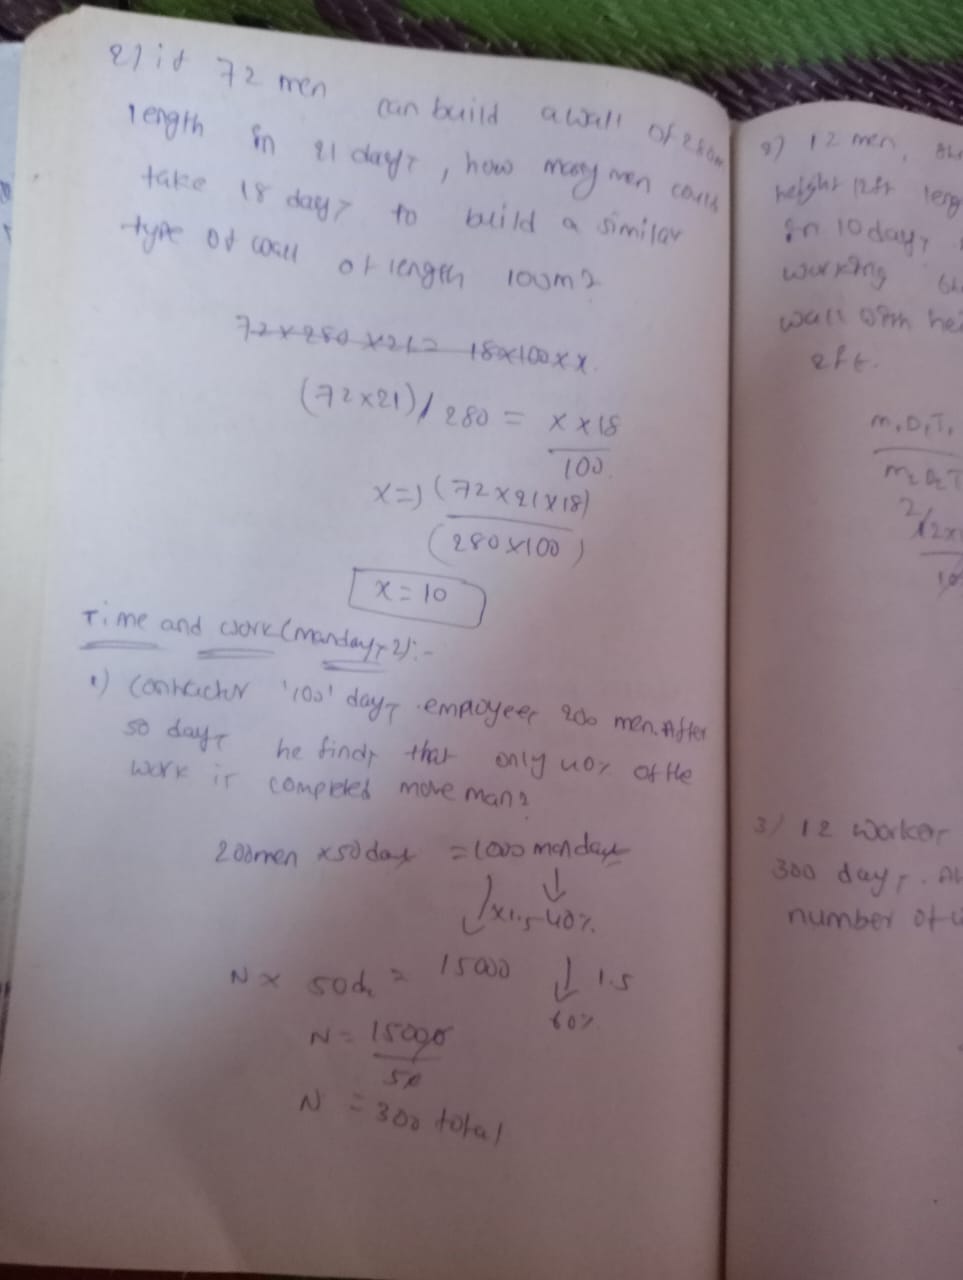 2) if 72 men can build a wall of 280m
length in 21 days, how many men could
take 18 days to build a similar
type of wall of length 100m?
72x280x21= 18x100xx.
(72x21)/280 = x x 18
100
x=) (72x21x18)
(280x100)
x=10
Time and work (mandays 2):-
1) Contractor '100' days employees 200 men. After
50 days he finds that only 40% of the
work is completed more man?
200men x50days =1000 mandays
x1.5 40%
N x 50d = 15000 1.5
60%
N = 15000
50
N = 300 total
2) 12 men,
height 12ft leng
in 10 days
working
wall with hei
2ft.
M1D1T1
M2D2T
3) 12 worker
300 days.
number of